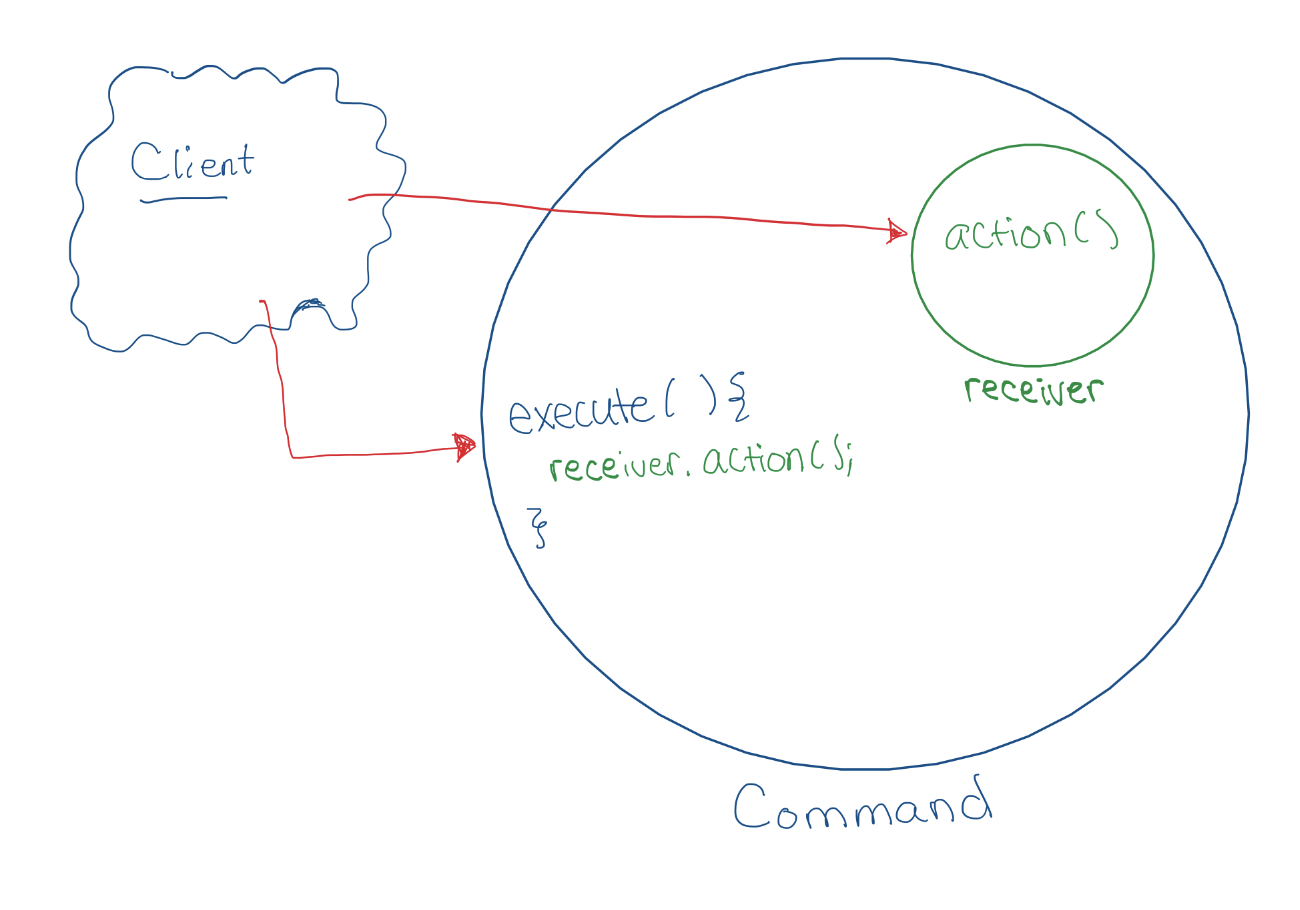 Client
action()
receiver
execute( ){
receiver.action();
}
Command